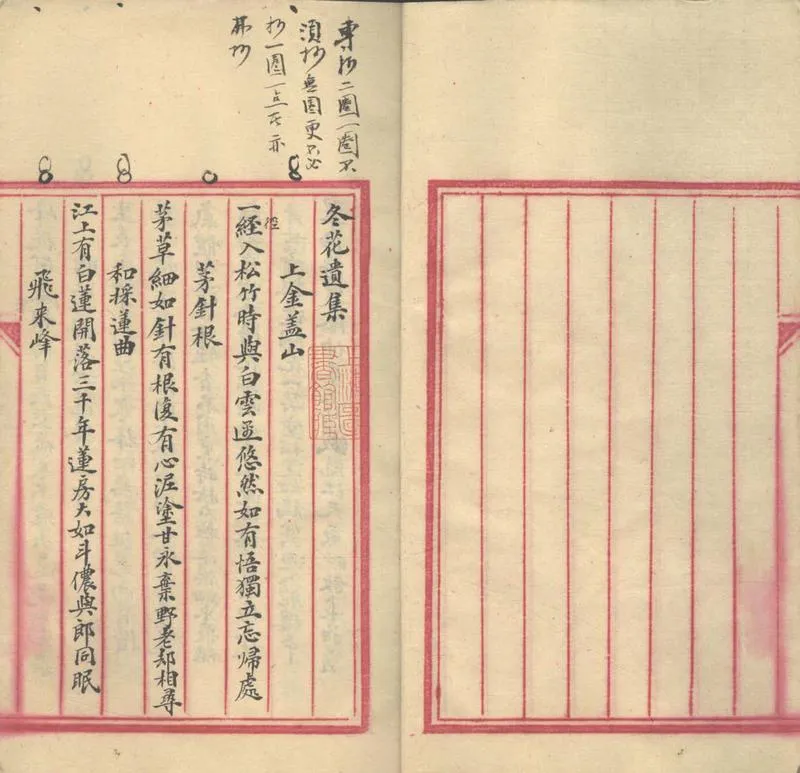 專抄二圈一圈不
須抄無圈更不必
抄一圈一点者亦
弗抄
冬花遺集
上金盖山
一経入松竹時與白雲遇悠然如有悟獨立忘歸處
徑
茅針根
茅草細如針有根復有心泥塗甘永棄野老却相尋
和採蓮曲
江上有白蓮開落三千年蓮房大如斗儂與郎同眠
飛來峰
上海圖
書館藏